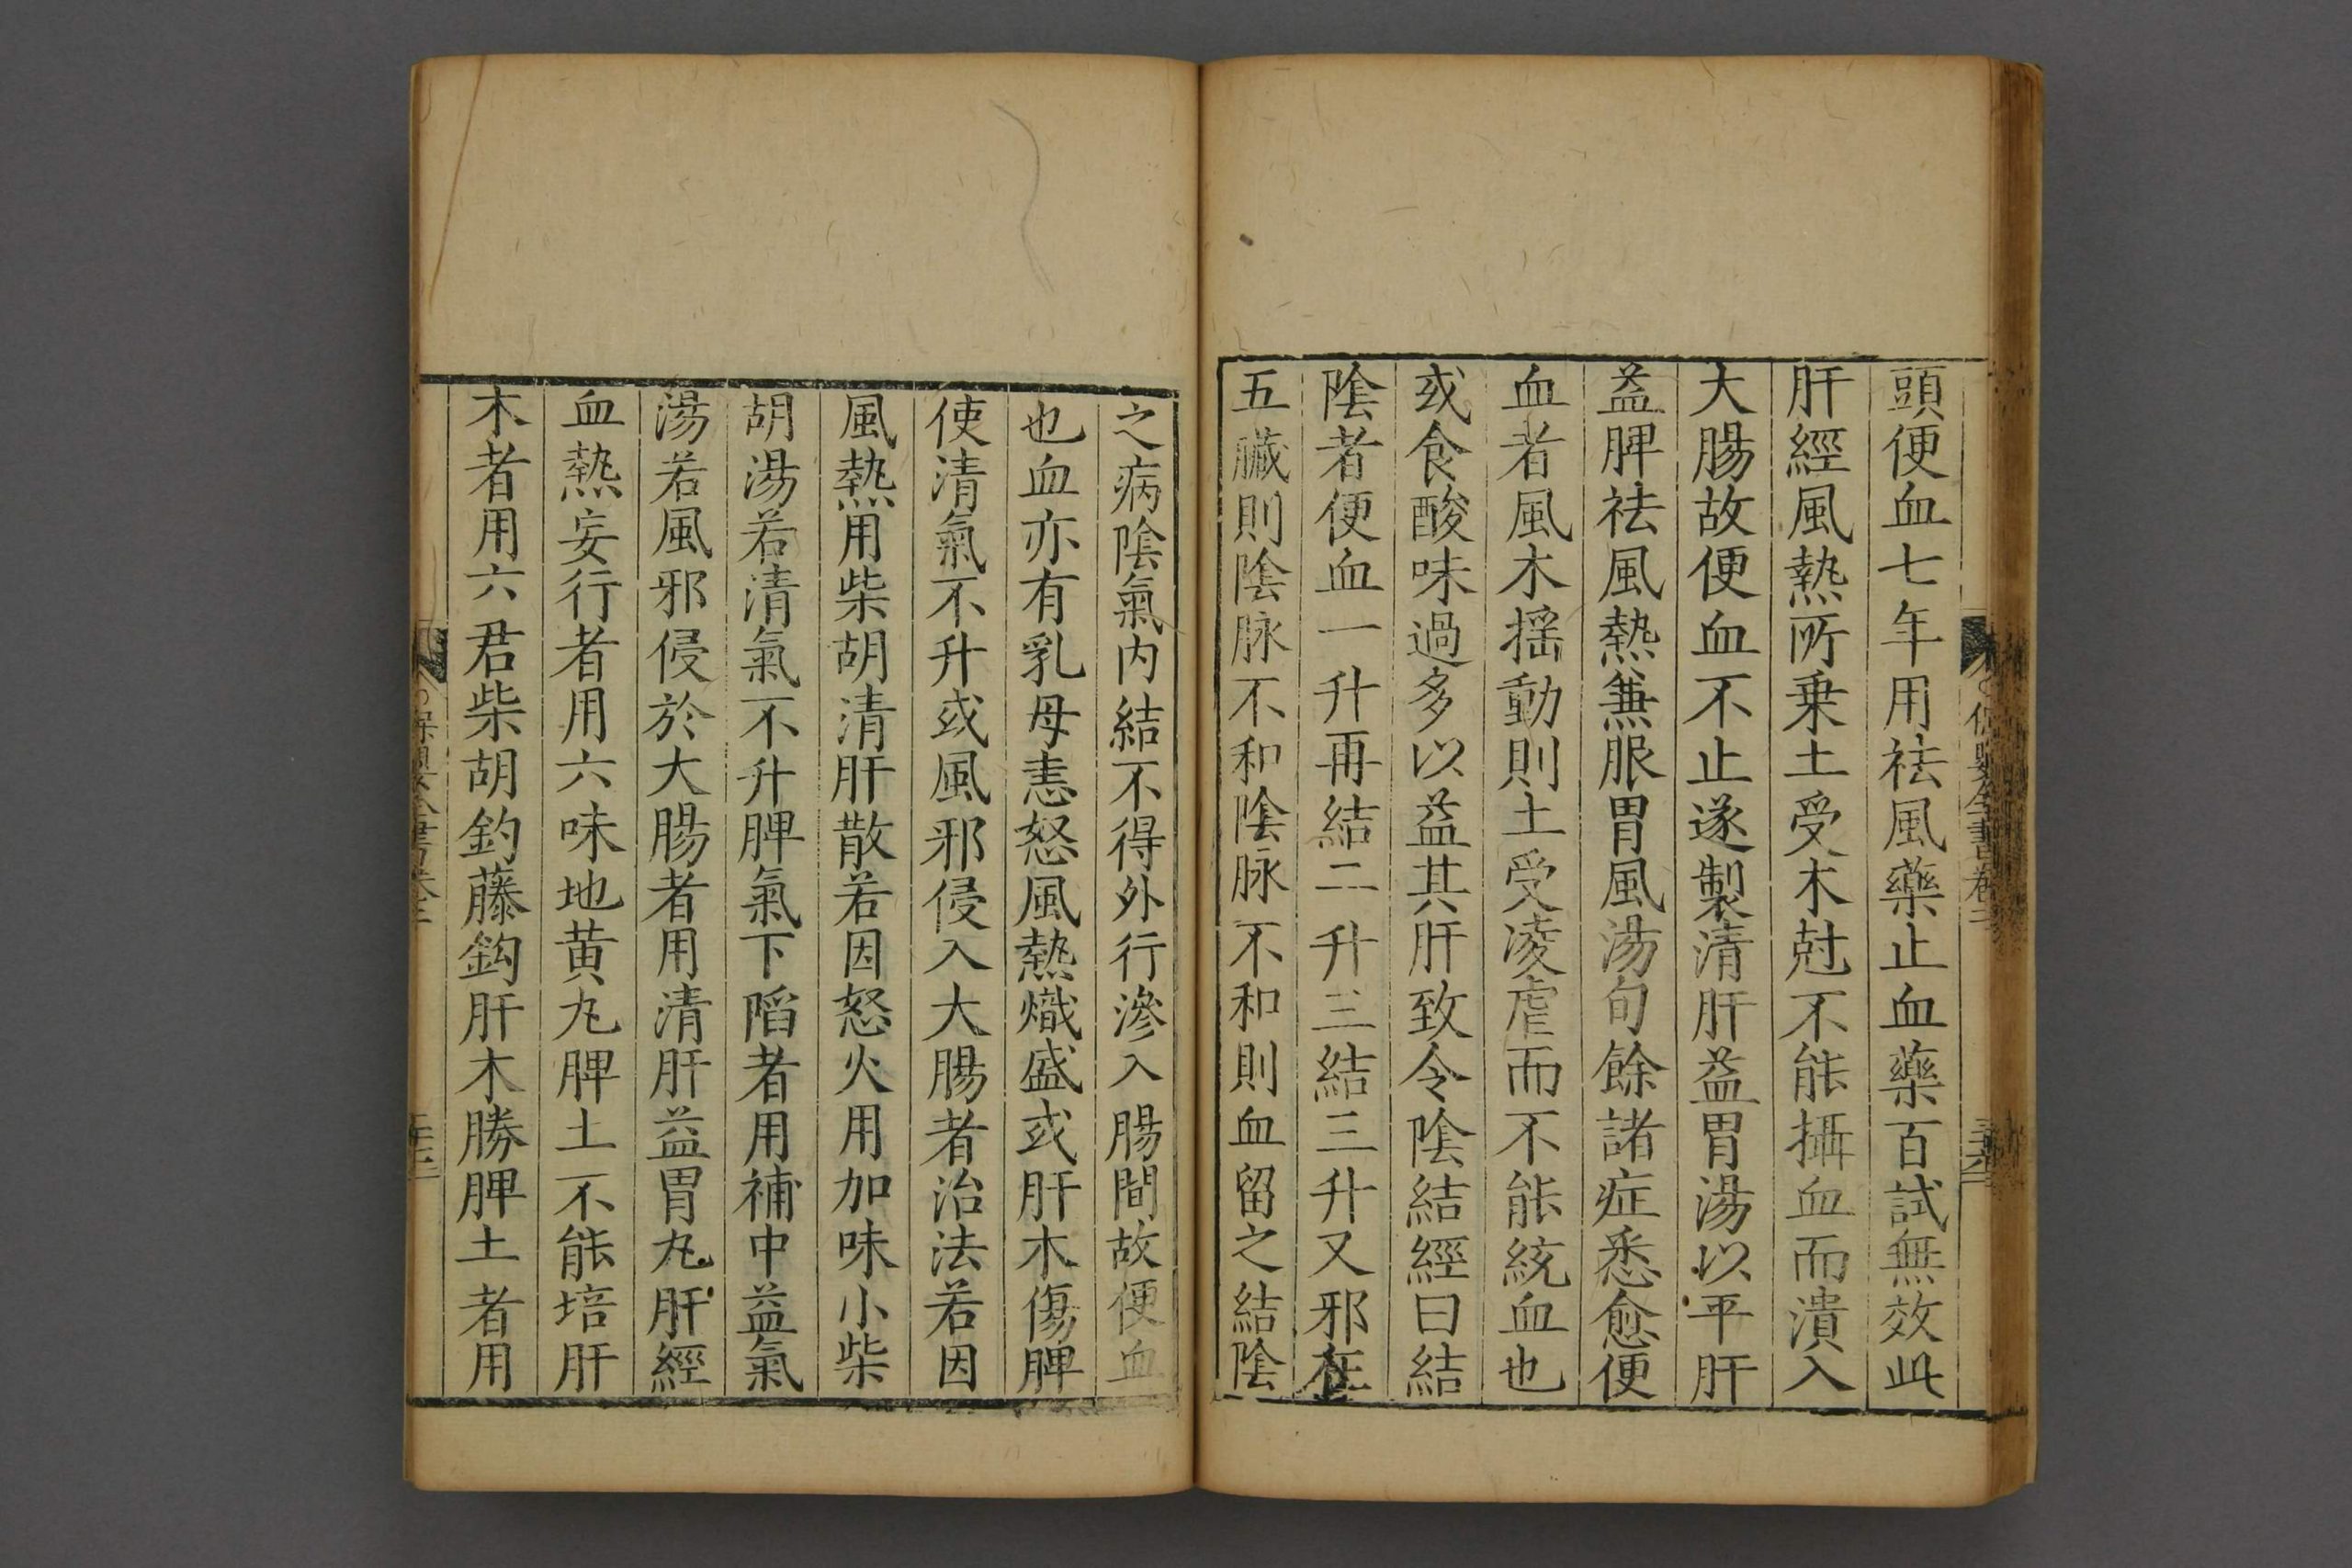 頭便血七年用祛風藥止血藥百試無效此
肝經風熱所乗土受木尅不能攝血而潰入
大腸故便血不止遂製清肝益胃湯以平肝
益脾祛風熱兼服胃風湯旬餘諸症悉愈便
血者風木摇動則土受凌虐而不能統血也
或食酸味過多以益其肝致令陰結經曰結
陰者便血一升再結二升三結三升又邪在
五臟則陰脉不和陰脉不和則血留之結陰
之病陰氣内結不得外行滲入腸間故便血
也血亦有乳母恚怒風熱熾盛或肝木傷脾
使清氣不升或風邪侵入大腸者治法若因
風熱用柴胡清肝散若因怒火用加味小柴
胡湯若清氣不升脾氣下陷者用補中益氣
湯若風邪侵於大腸者用清肝益胃丸肝經
血熱妄行者用六味地黄丸脾土不能培肝
木者用六君柴胡釣藤鈎肝木勝脾土者用